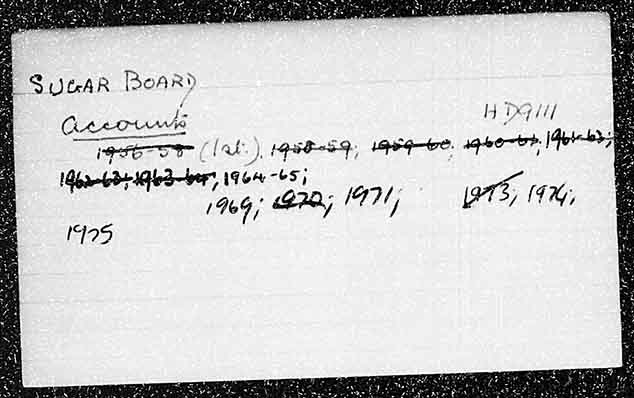 SUGAR BOARD
HD9111
Accounts
1956-58 (1st), 1958-59; 1959-60; 1960-61, 1961-63;
1962-63; 1963-64, 1964-65;
1969; 1970; 1971; 1973; 1974;
1975